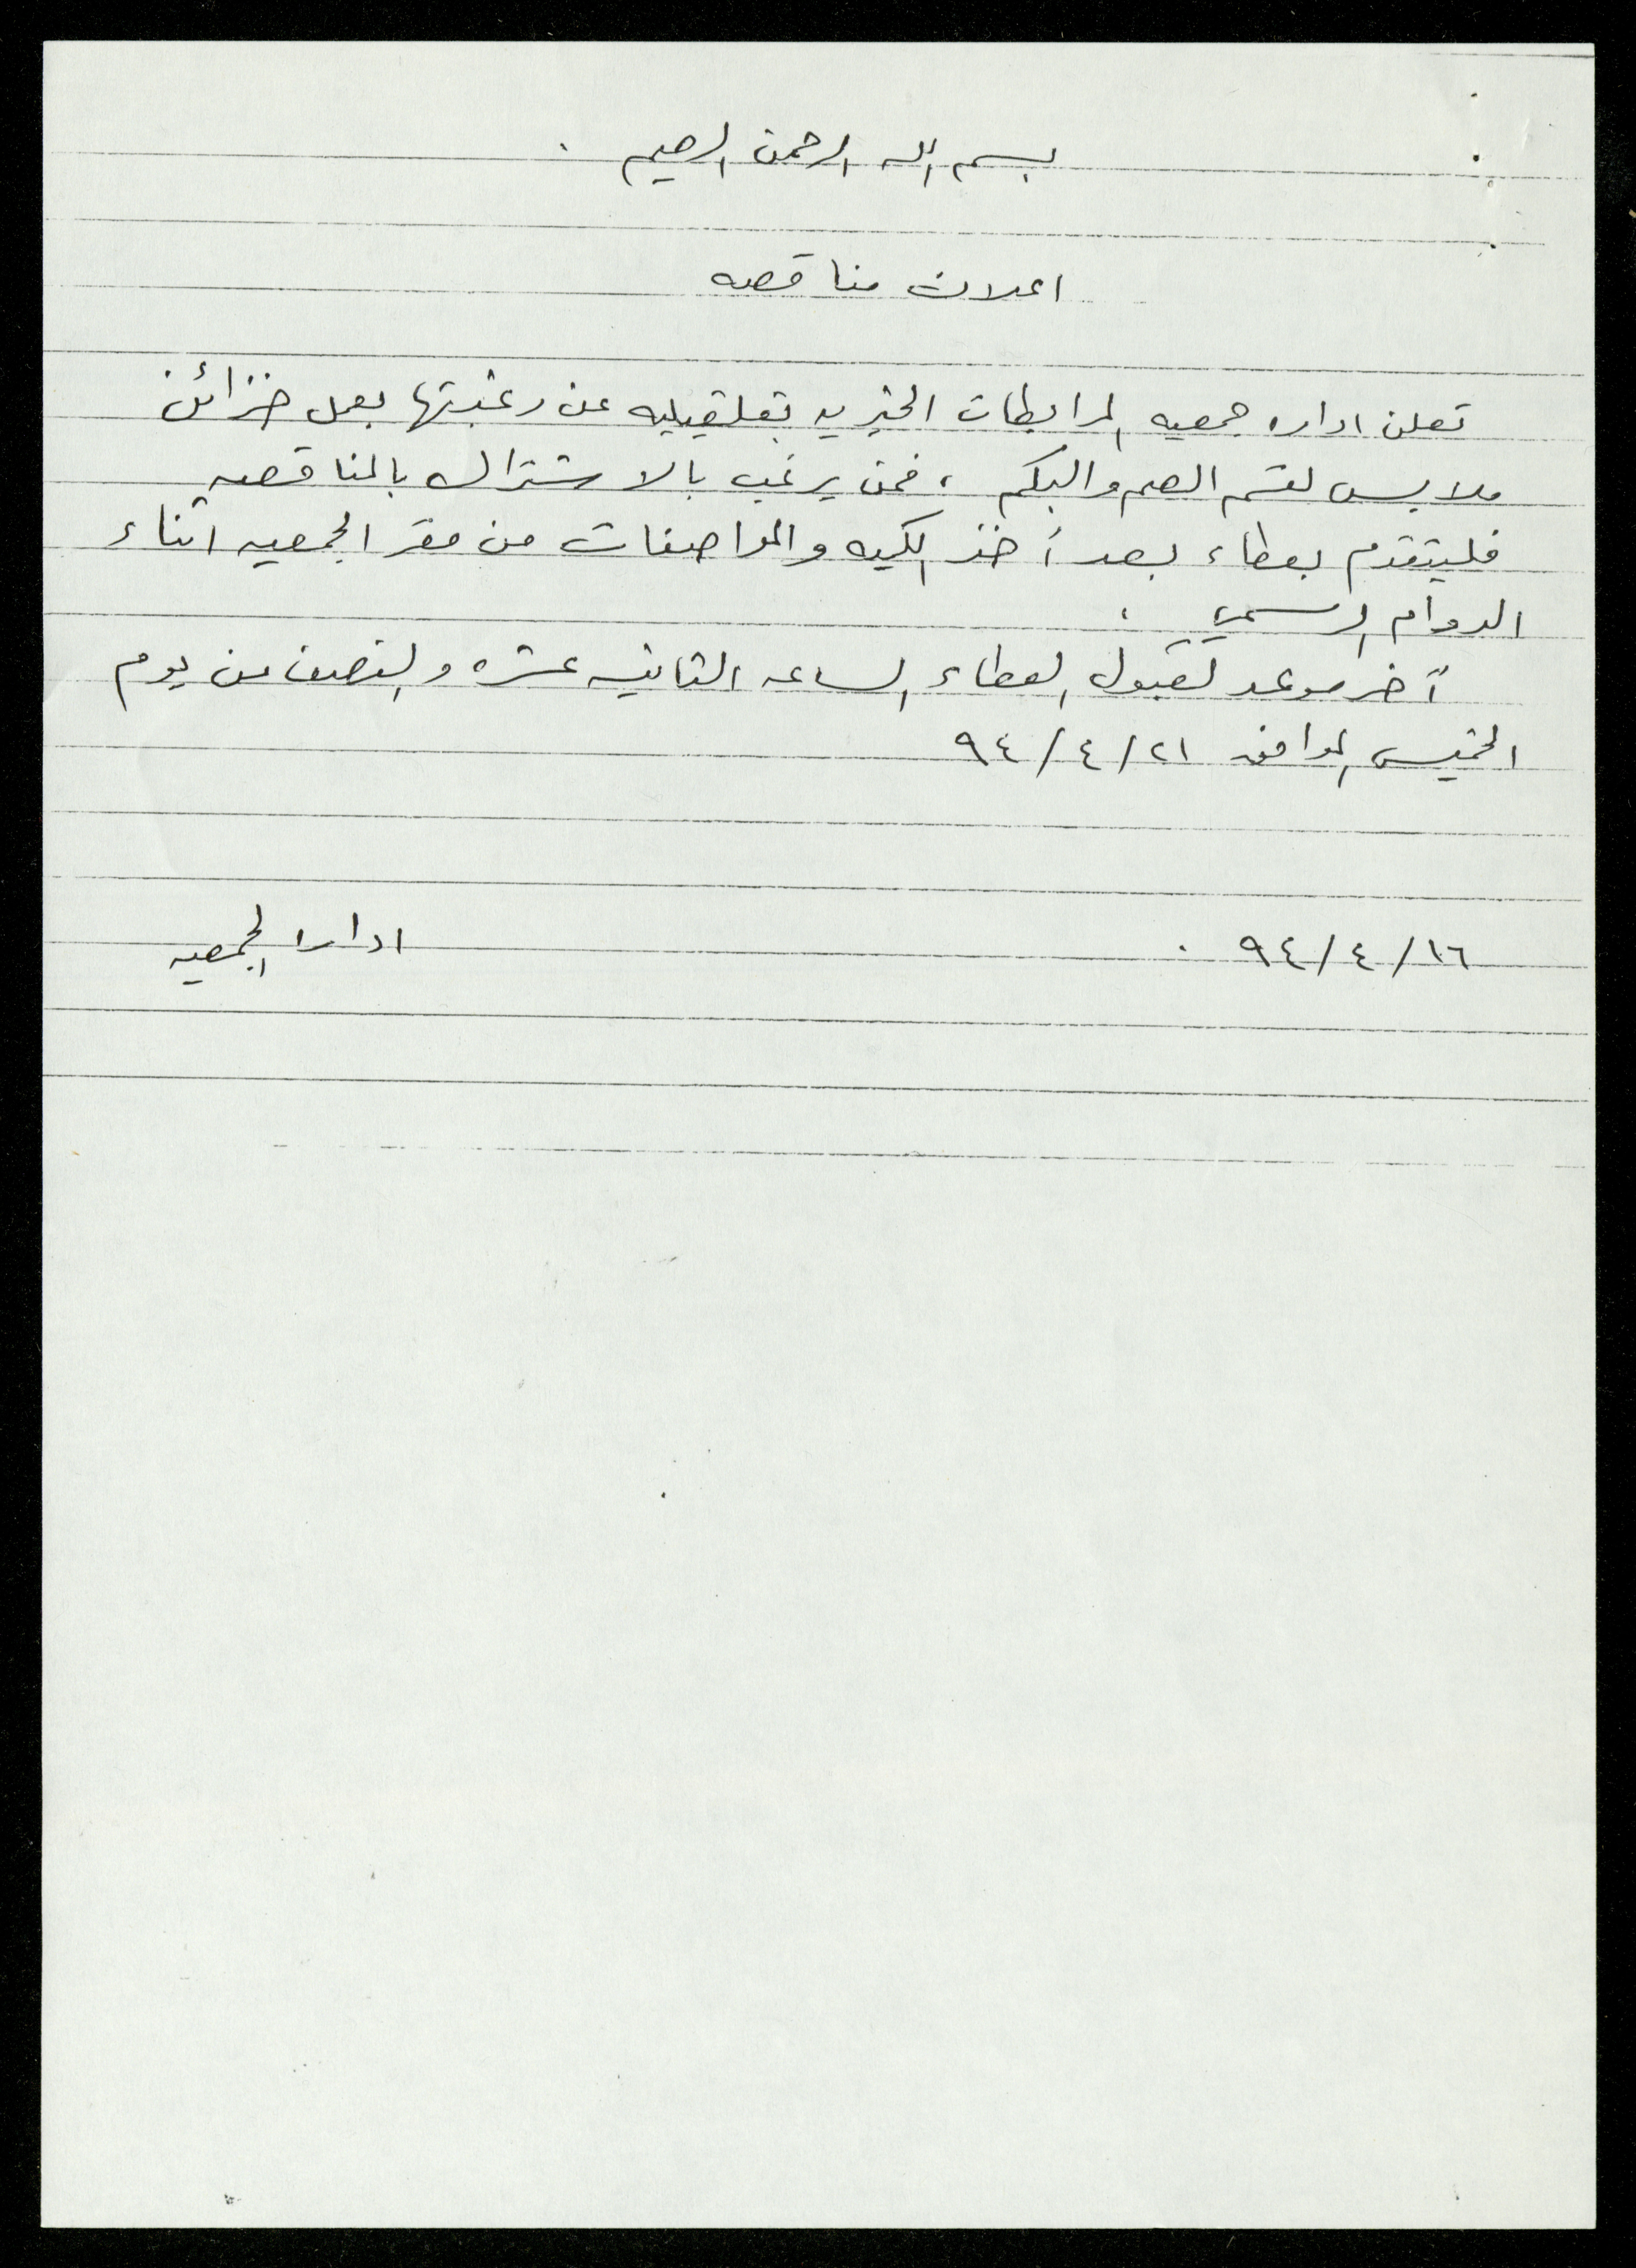 بسم الله الرحمن الرحيم .
اعلان مناقصه
تعلن اداره جمعيه المرابطات الخيريه بقلقيليه عن رغبتها بعمل خزائن
ملابس لقسم الصم والبكم ، فمن يرغب بالاشتراك بالمناقصه
فليتقدم بعطاء بعد أخذ الكميه والمواصفات من مقر الجمعيه اثناء
الدوام الرسمي .
آخر موعد لقبول العطاء الساعه الثانيه عشره والنصف من يوم
الخميس الموافق ٢١/٤/٩٤
١٦/٤/٩٤ . اداره الجمعيه